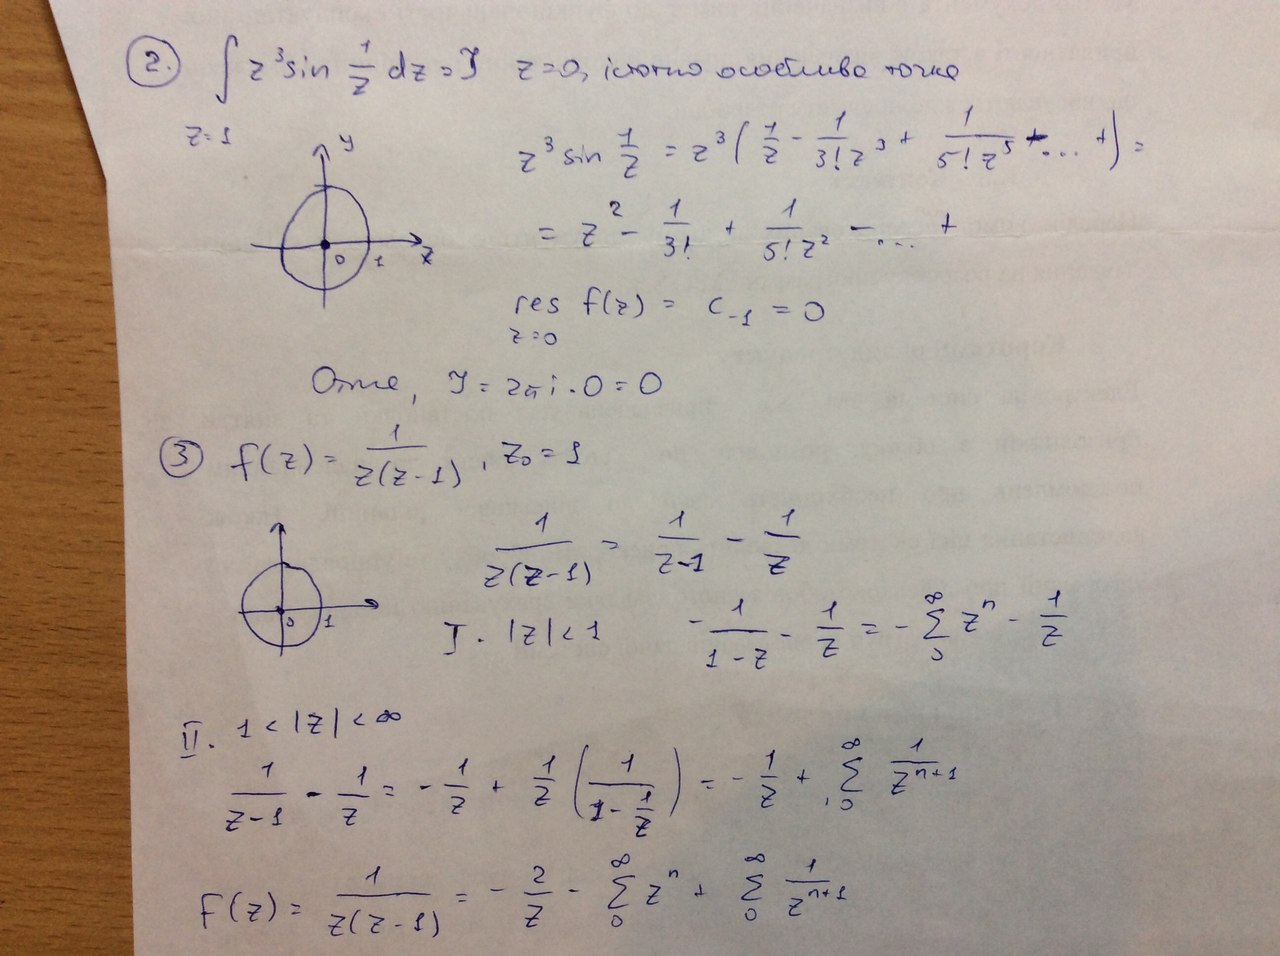 2. ∫ z³ sin 1/z dz = J z=0, істотно особлива точка
z=1
y
z³ sin 1/z = z³ ( 1/z - 1/3!z³ + 1/5!z⁵ - ... + ) =
= z² - 1/3! + 1/5!z² - ... +
0 1 x
res f(z) = c₋₁ = 0
z=0
Отже, J = 2πi · 0 = 0
3 f(z) = 1/z(z-1), z₀ = 1
1/z(z-1) = 1/z-1 - 1/z
0 1
I. |z| < 1 - 1/1-z - 1/z = - ∞Σ0 zⁿ - 1/z
II. 1 < |z| < ∞
1/z-1 - 1/z = - 1/z + 1/z ( 1/1-1/z ) = - 1/z + ∞Σ0 1/zⁿ⁺¹
F(z) = 1/z(z-1) = - 2/z - ∞Σ0 zⁿ + ∞Σ0 1/zⁿ⁺¹